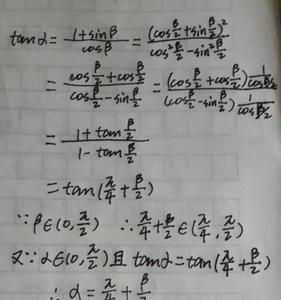 tanα = (1+sinβ)/cosβ = (cos β/2 + sin β/2)²/(cos² β/2 − sin² β/2)
= (cos β/2 + cos β/2)/(cos β/2 − sin β/2) = (cos β/2 + cos β/2) 1/cos β/2 / (cos β/2 − sin β/2) 1/cos β/2
= (1+tan β/2)/(1−tan β/2)
= tan(π/4 + β/2)
∵ β∈(0, π/2) ∴ π/4 + β/2 ∈ (π/4, π/2)
又∵ α∈(0, π/2) 且 tanα = tan(π/4 + β/2)
∴ α = π/4 + β/2